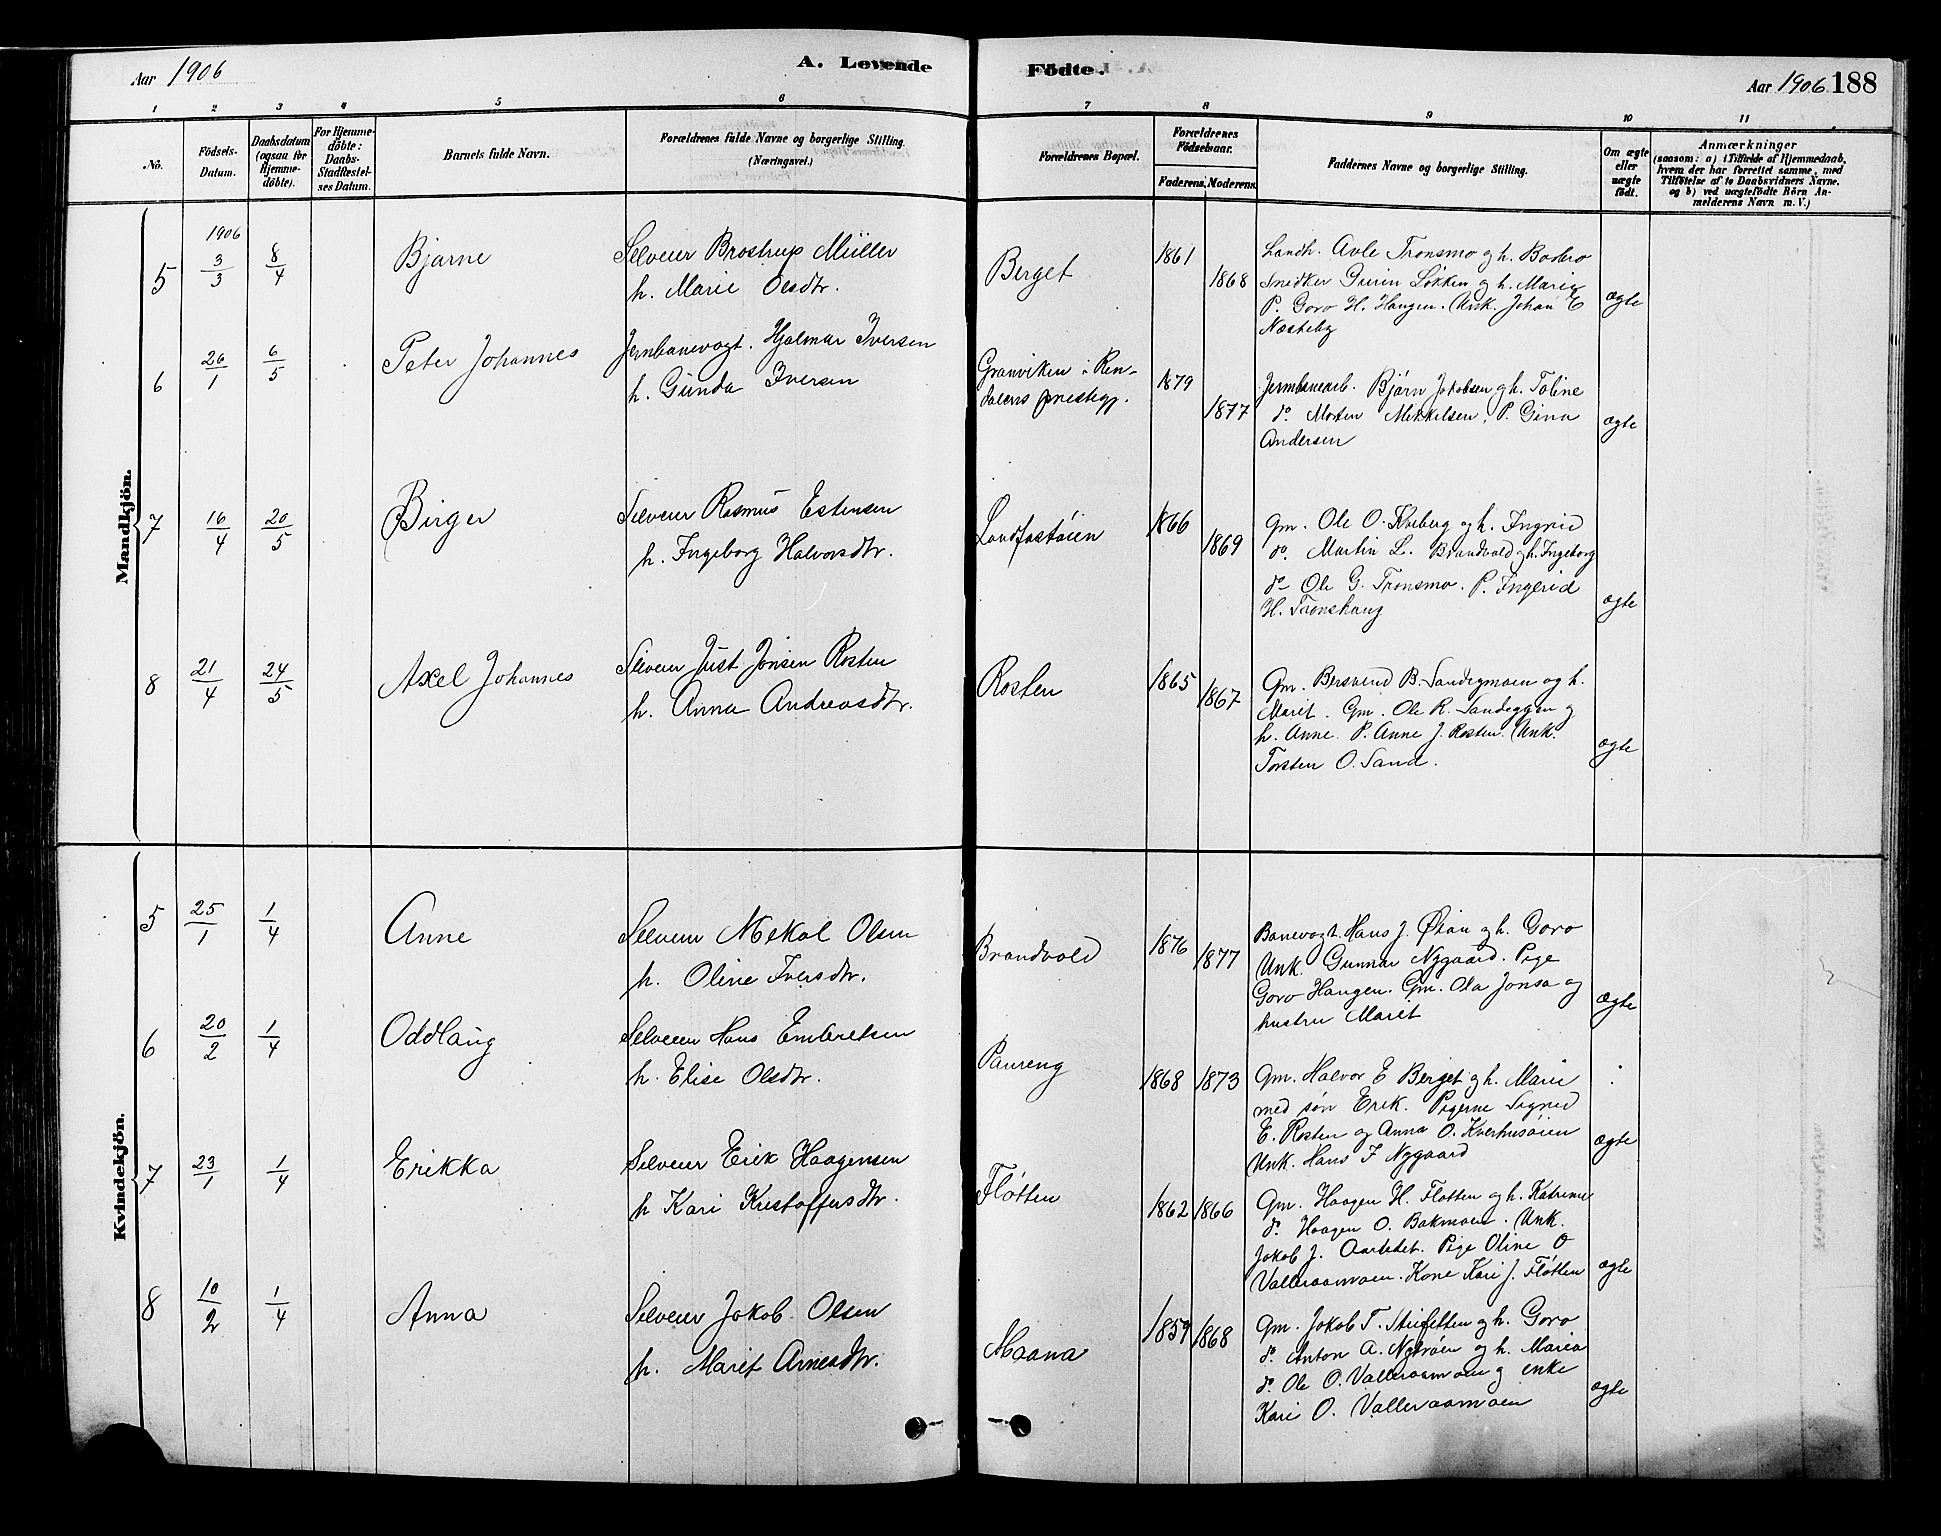 Aar 1906
A. Levende
Födte.
Aar 1906 188
1 2 3 4 5 6 7 8 9 10 11
No.
Födsels-
Datum.
Daabsdatum
(ogsaa for
Hjemme-
döbte).
For Hjemme-
döbte:
Daabs-
Stadfestel-
ses Datum.
Barnets fulde Navn.
Forældrenes fulde Navne og borgerlige Stilling.
(Næringsvei.)
Forældrenes Bopæl.
Forældrenes
Födselsaar.
Faderens. Moderens.
Faddernes Navne og borgerlige Stilling.
Om ægte
eller
uægte
födt.
Anmærkninger
(saasom: a) i Tilfælde af Hjemmedaab,
hvem der har forrettet samme, med
Tilföielse af to Daabsvidners Navne,
og b) ved uægtefödte Börn An-
melderens Navn m. V.)
Mandkjön.
1906
5
3/3
8/4
Bjarne
Selveier Brostrup Müller
h. Marie Olsdtr.
Berget
1861
1868
Landh. Avle Tronsmo og h. Bodero
Snedker Løkken og h. Marie
P. Goro H. Haugen. Unk. Johan E
Næsteby
ægte
6
26/1
6/5
Peter Johannes
Jernbanevogt. Hjalmar Iversen
h. Gunda Iversen
Granviken i Ren-
dalens prestegj.
1879
1877
Jernbanearb. Bjørn Jakobsen og h. Toline
do Morten Mikkelsen, P. Gina
Andersen
ægte
7
16/4
20/5
Birger
Selveier Rasmus Estensen
h. Ingeborg Halvorsdtr.
Londfastøien
1866
1869
Gm. Ole O. Kveberg og h. Ingrid
do. Martin L. Brandvold og h. Ingeborg
do Ole G. Tronsmo. P. Ingerid
H. Tronshaug
ægte
8
21/4
24/5
Axel Johannes
Selveier Just Jonsen Rosten
h. Anna Andreasdtr.
Rosten
1865
1867
Gm. Bersvend B. Sandegmoen og h.
Marit. Gm. Ole R. Sandeggen og
h. Anne. P. Anne J. Rosten. Unk.
Torsten O. Sand.
ægte
Kvindekjön.
5
25/1
1/4
Anne
Selveier Mekal Olsen
h. Oline Iversdtr.
Brandvold
1876
1877
Banevogt. Hans J. Øian og h. Goro
Unk. Gunnar Nygaard. Pige
Goro Haugen. Gm. Ola Jonsa og
hustru Marit
Ægte
6
20/2
1/4
Oddlaug
Selveier Hans Embretsen
h. Elise Olsdtr.
Paureng
1868
1873
Gm. Halvor E Berget og h. Marie
med søn Erik. Pigerne Signed
E. Rosten og Anna O. Kverhusøien
Unk. Hans F Nygaard
ægte
7
23/1
1/4
Erikka
Selveier Erik Haagensen
h Kari Kristoffersdtr.
Fløtten
1862
1866
Gm. Haagen H. Fløtten og h. Katrine
do. Haagen O. Bakmoen. Unk.
Jakob J. Aarletet. Pige Oline O
Valleraamoen. Kone Kari J. Fløtten
ægte
8
10/2
1/4
Anna
Selveier Jakob Olsen
h. Marit Arnesdtr.
Maana
1859
1868
Gm. Jakob T. Streifetten og h. Goro
do. Anton A. Nytrøen og h. Maria
do. Ole O. Valleraamoen og enke
Kari O. Valleraamoen
ægte